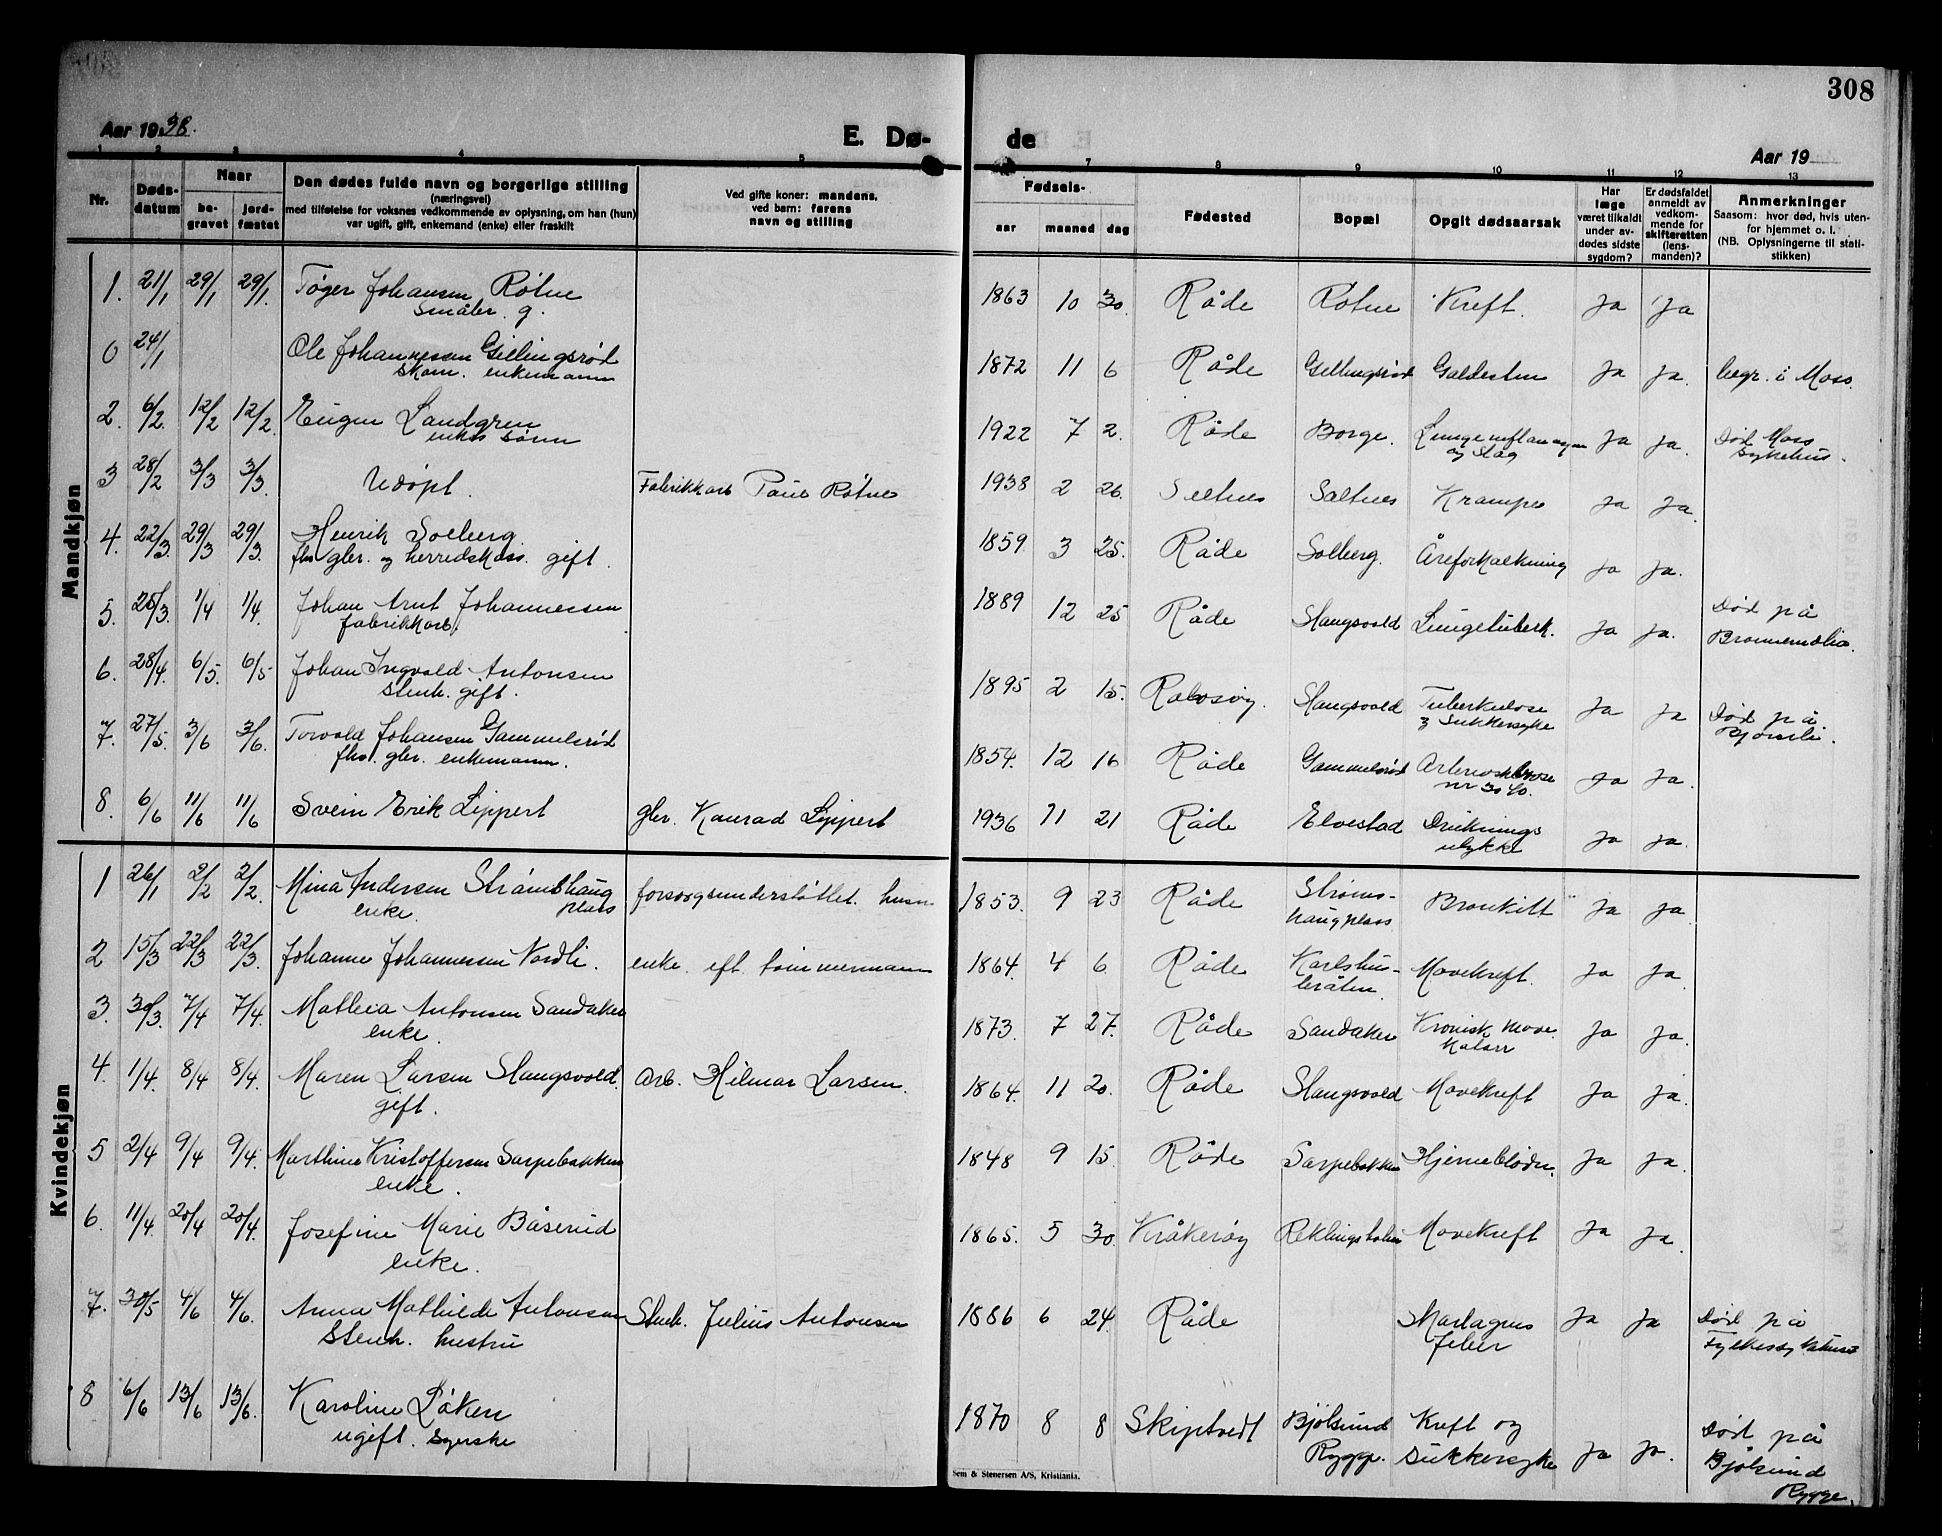 308
Aar 1938.
E. Dø-
de
Aar 19
1 2 3 4 5
7 8 9 10 11 12 13
Nr.
Døds-
datum
Naar
be-
gravet
jord-
fæstet
Den dødes fulde navn og borgerlige stilling
(næringsvei)
med tilføielse for voksnes vedkommende av oplysning, om han (hun)
var ugift, gift, enkemand (enke) eller fraskilt
Ved gifte koner: mandens,
ved barn: farens
navn og stilling
Fødsels-
aar maaned dag
Fødested
Bopæl
Opgit dødsaarsak
Har
læge
været tilkaldt
under av-
dødes sidste
sygdom?
Er dødsfaldet
anmeldt av
vedkom-
mende for
skifteretten
(lens-
manden)?
Anmerkninger
Saasom: hvor død, hvis uten-
for hjemmet o. l.
(NB. Oplysningerne til stati-
stikken)
Mandkjøn
1. 21/1 29/1 29/1. Tøger Johansen Rötne 1863 10 30. Råde Rötne Kreft. Ja Ja
Småbr. g.
0 24/1 Ole Johannessen Gillingsrød 1872 11 6 Råde Gillingsrød Galdesten Ja Ja. begr. i Moss.
enkemann
2. 6/2. 12/2 12/2. Eugen Landgren 1922 7 2. Råde Borge. Ja Ja. Død Moss
enkes sønn og Slag Sykehus.
3 28/2 3/3 3/3. Udöpt. Fabrikkarb Paul Rötne 1938 2 26. Saltnes Krampe Ja Ja.
4. 22/3. 29/3 29/3. Henrik Solberg 1859. 3 25. Råde Solberg. Åreforkalkning Ja Ja.
fhv gbr. og herredskass. gift.
5. 25/3. 1/4 1/4. Johan Arnt Johannessen 1889 12 25 Råde Slangsvold Lungetuberk. Ja Ja. Død på
fabrikkarb.
6. 28/4. 6/5. 6/5 Johan Ingvald Antonsen 1895 2 15. Slangsvold Tuberkulose Ja Ja Død på
Stenh. gift. Sukkersyke
7. 27/5. 3/6 3/6. Torvald Johansen Gammelsrød 1854. 12 16 Råde Gammelsrød Ja Ja.
fhv. gbr. enkemann.
8. 6/6 11/6 11/6 Svein Erik Lippert gbr. Konrad Lippert 1936 11 21 Råde Elvestad Druknings Ja Ja.
ulykke
Kvindekjøn
1 26/1 2/2 2/2. Mina Andersen Strömshaug forsorgsunderstöttet. husm. 1853. 9 23 Råde Ströms- Bronkitt Ja Ja.
enke. plass haugplass
2 15/3 22/3 22/3. Johanne Johannessen Nordli. enke. eft. tömmermann 1864. 4 6 Råde Karlshus- Mavekreft. Ja Ja.
bråten.
3. 30/3. 7/4 7/4. Mathea Antonsen Sandaker 1873. 7 27. Råde Sandaker Kronisk mave Ja Ja.
enke. katarr
4. 1/4. 8/4 8/4. Maren Larsen Slangsvold. Arb. Hilmar Larsen. 1864. 11 20. Råde Slangsvold Mavekreft Ja Ja.
gift.
5 2/4 9/4 9/4. Marthine Kristoffersen Sarpebakken 1848 9 15. Råde Sarpebakken Hjerneblödn. Ja Ja.
enke.
6. 11/4. 20/4 20/4. Josefine Marie Båserud 1865. 5 30. Kråkeröy Mavekreft Ja Ja.
enke.
7. 30/5 4/6 4/6. Anna Mathilde Antonsen Stenh. Julius Antonsen 1886 6 24. Råde Skarlagens Ja Ja Død på
Stenh. hustru feber Fylkessykehuset
8 6/6 13/6 13/6. Karoline Löken 1870 8 8 Skiptvedt Bjölsund Kreft og Ja Ja. Død på
ugift. Syerske Rygge. Sukkersyke Bjölsund
Rygge.
Sem & Stenersen A/S, Kristiania.